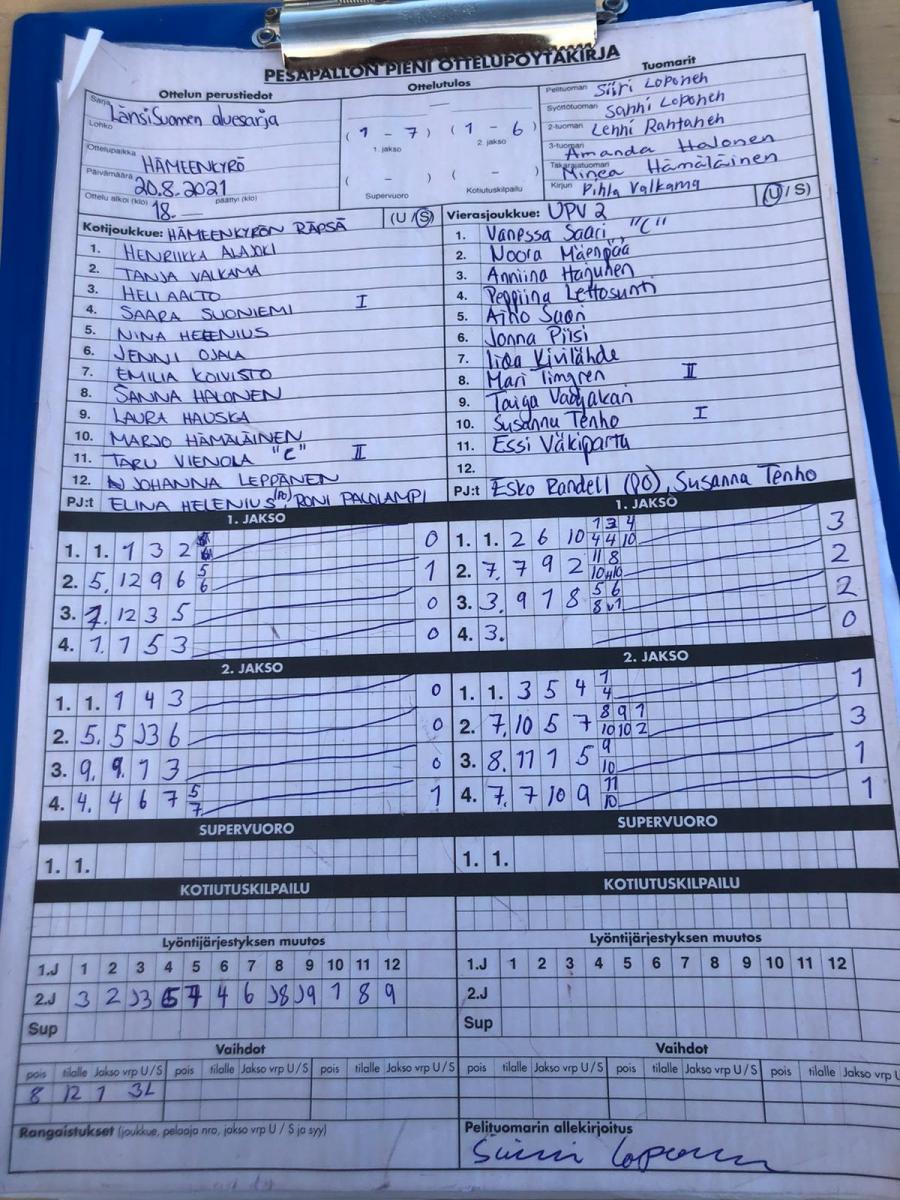 PESÄPALLON PIENI OTTELUPÖYTÄKIRJA
Ottelun perustiedot
Sarja LänsiSuomen aluesarja
Lohko
Ottelupaikka HÄMEENKYRÖ
Päivämäärä 20.8.2021
Ottelu alkoi (klo) 18.— päättyi (klo)
Ottelutulos
( 1 - 7 ) ( 1 - 6 )
1. jakso 2. jakso
( - ) ( - )
Supervuoro Kotiutuskilpailu
Tuomarit
Pelituomari Siiri Loponen
Syöttötuomari Sanni Loponen
2-tuomari Lenni Rantanen
3-tuomari Amanda Halonen
Takarajatuomari Minea Hämäläinen
Kirjuri Pihla Valkama
Kotijoukkue: HÄMEENKYRÖN RÄPSÄ (U / S)
1. HENRIIKKA ALAJOKI
2. TANJA VALKAMA
3. HELI AALTO
4. SAARA SUONIEMI I
5. NINA HELENIUS
6. JENNI OJALA
7. EMILIA KOIVISTO
8. SANNA HALONEN
9. LAURA HAUSKA
10. MARJO HÄMÄLÄINEN
11. TARU VIENOLA "C" II
12. JOHANNA LEPPÄNEN
PJ:t ELINA HELENIUS (PO), RONI PALOLAMPI
Vierasjoukkue: UPV 2 (U / S)
1. Vanessa Saari "C"
2. Noora Mäenpää
3. Anniina Hanunen
4. Peppiina Lettosunti
5. Aino Saari
6. Jonna Piisi
7. Iida Kivilähde
8. Mari Timgren II
9. Taiga
10. Susanna Tenho I
11. Essi Väkiparta
12.
PJ:t Esko Randell (PO), Susanna Tenho
1. JAKSO
1. 1. 1 3 2 0
2. 5. 12 9 6 5 6 1
3. 7. 12 3 5 0
4. 1. 1 5 3 0
2. JAKSO
1. 1. 1 4 3 0
2. 5. 5 J3 6 0
3. 9. 9. 1 3 0
4. 4. 4 6 7 5 7 1
SUPERVUORO
1. 1.
KOTIUTUSKILPAILU
Lyöntijärjestyksen muutos
1.J 1 2 3 4 5 6 7 8 9 10 11 12
2.J 3 2 J3 5 7 4 6 J8 J9 1 8 9
Sup
Vaihdot
pois tilalle Jakso vrp U / S pois tilalle Jakso vrp U / S pois tilalle Jakso vrp U / S
8 12 1 3L
Rangaistukset (joukkue, pelaaja nro, jakso vrp U / S ja syy)
1. JAKSO
1. 1. 2 6 10 1 3 4 3
4 4 10
2. 7. 7 9 2 11 8 2
3. 3. 9 1 8 5 6 2
4. 3. 0
2. JAKSO
1. 1. 3 5 4 1 4 1
2. 7. 10 5 7 8 9 1 3
10 10 2
3. 8. 11 1 5 9 10 1
4. 7. 7 10 9 11 10 1
SUPERVUORO
1. 1.
KOTIUTUSKILPAILU
Lyöntijärjestyksen muutos
1.J 1 2 3 4 5 6 7 8 9 10 11 12
2.J
Sup
Vaihdot
pois tilalle Jakso vrp U / S pois tilalle Jakso vrp U / S pois tilalle Jakso vrp U
Pelituomarin allekirjoitus
Siiri Loponen